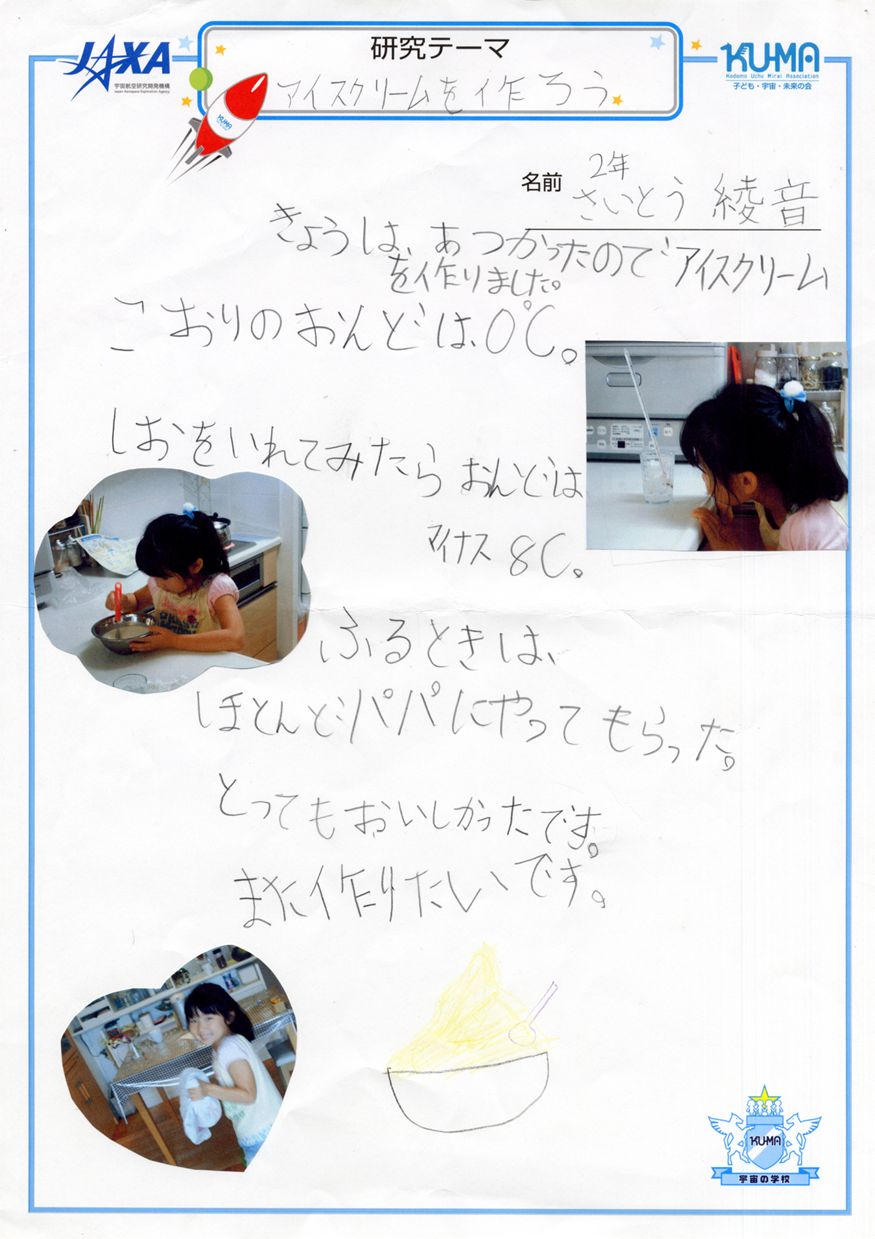 JAXA
宇宙航空研究開発機構
Japan Aerospace Exploration Agency
研究テーマ
アイスクリームを作ろう
KU-MA
Kodomo Uchu Mirai Association
子ども・宇宙・未来の会
KU-MA
名前 2年
さいとう 綾音
きょうは、あつかったのでアイスクリーム
を作りました。
こおりのおんどは、0℃。
しおをいれてみたら おんどは
マイナス 8C。
ふるときは、
ほとんどパパにやってもらった。
とってもおいしかったです。
また作りたいです。
KU-MA
宇宙の学校